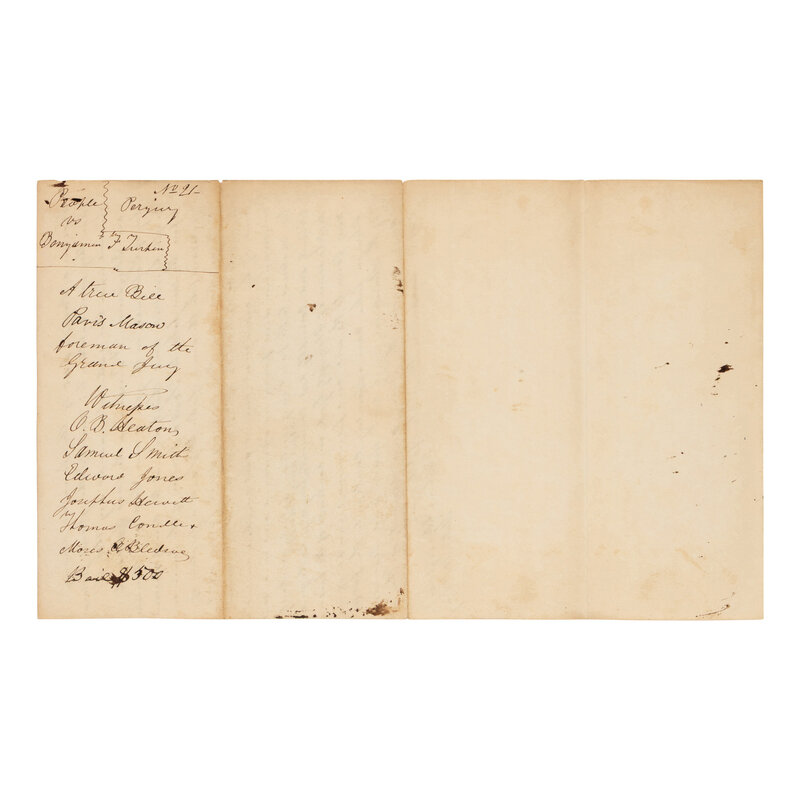 No 21
People
vs
Benjamin F Turkin
Perjury
A true Bill
Paris Mason
foreman of the
Grand Jury
Witnesses
O. B. Heaton,
Samuel Smith
Edward Jones
Josephus Hewett
Thomas &
Moses O Bledsoe
Bail $500